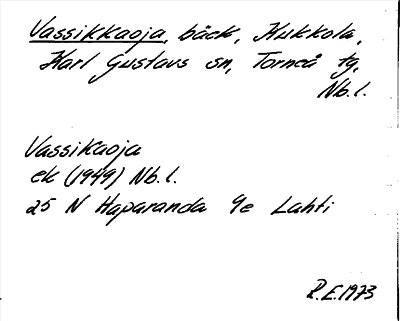 Vassikkaoja, bäck, Kukkola,
Karl Gustavs sn, Torneå tg,
Nb.l.
Vassikaoja
ek (1949) Nb.l.
25 N Haparanda 9e Lahti
R.E.1973